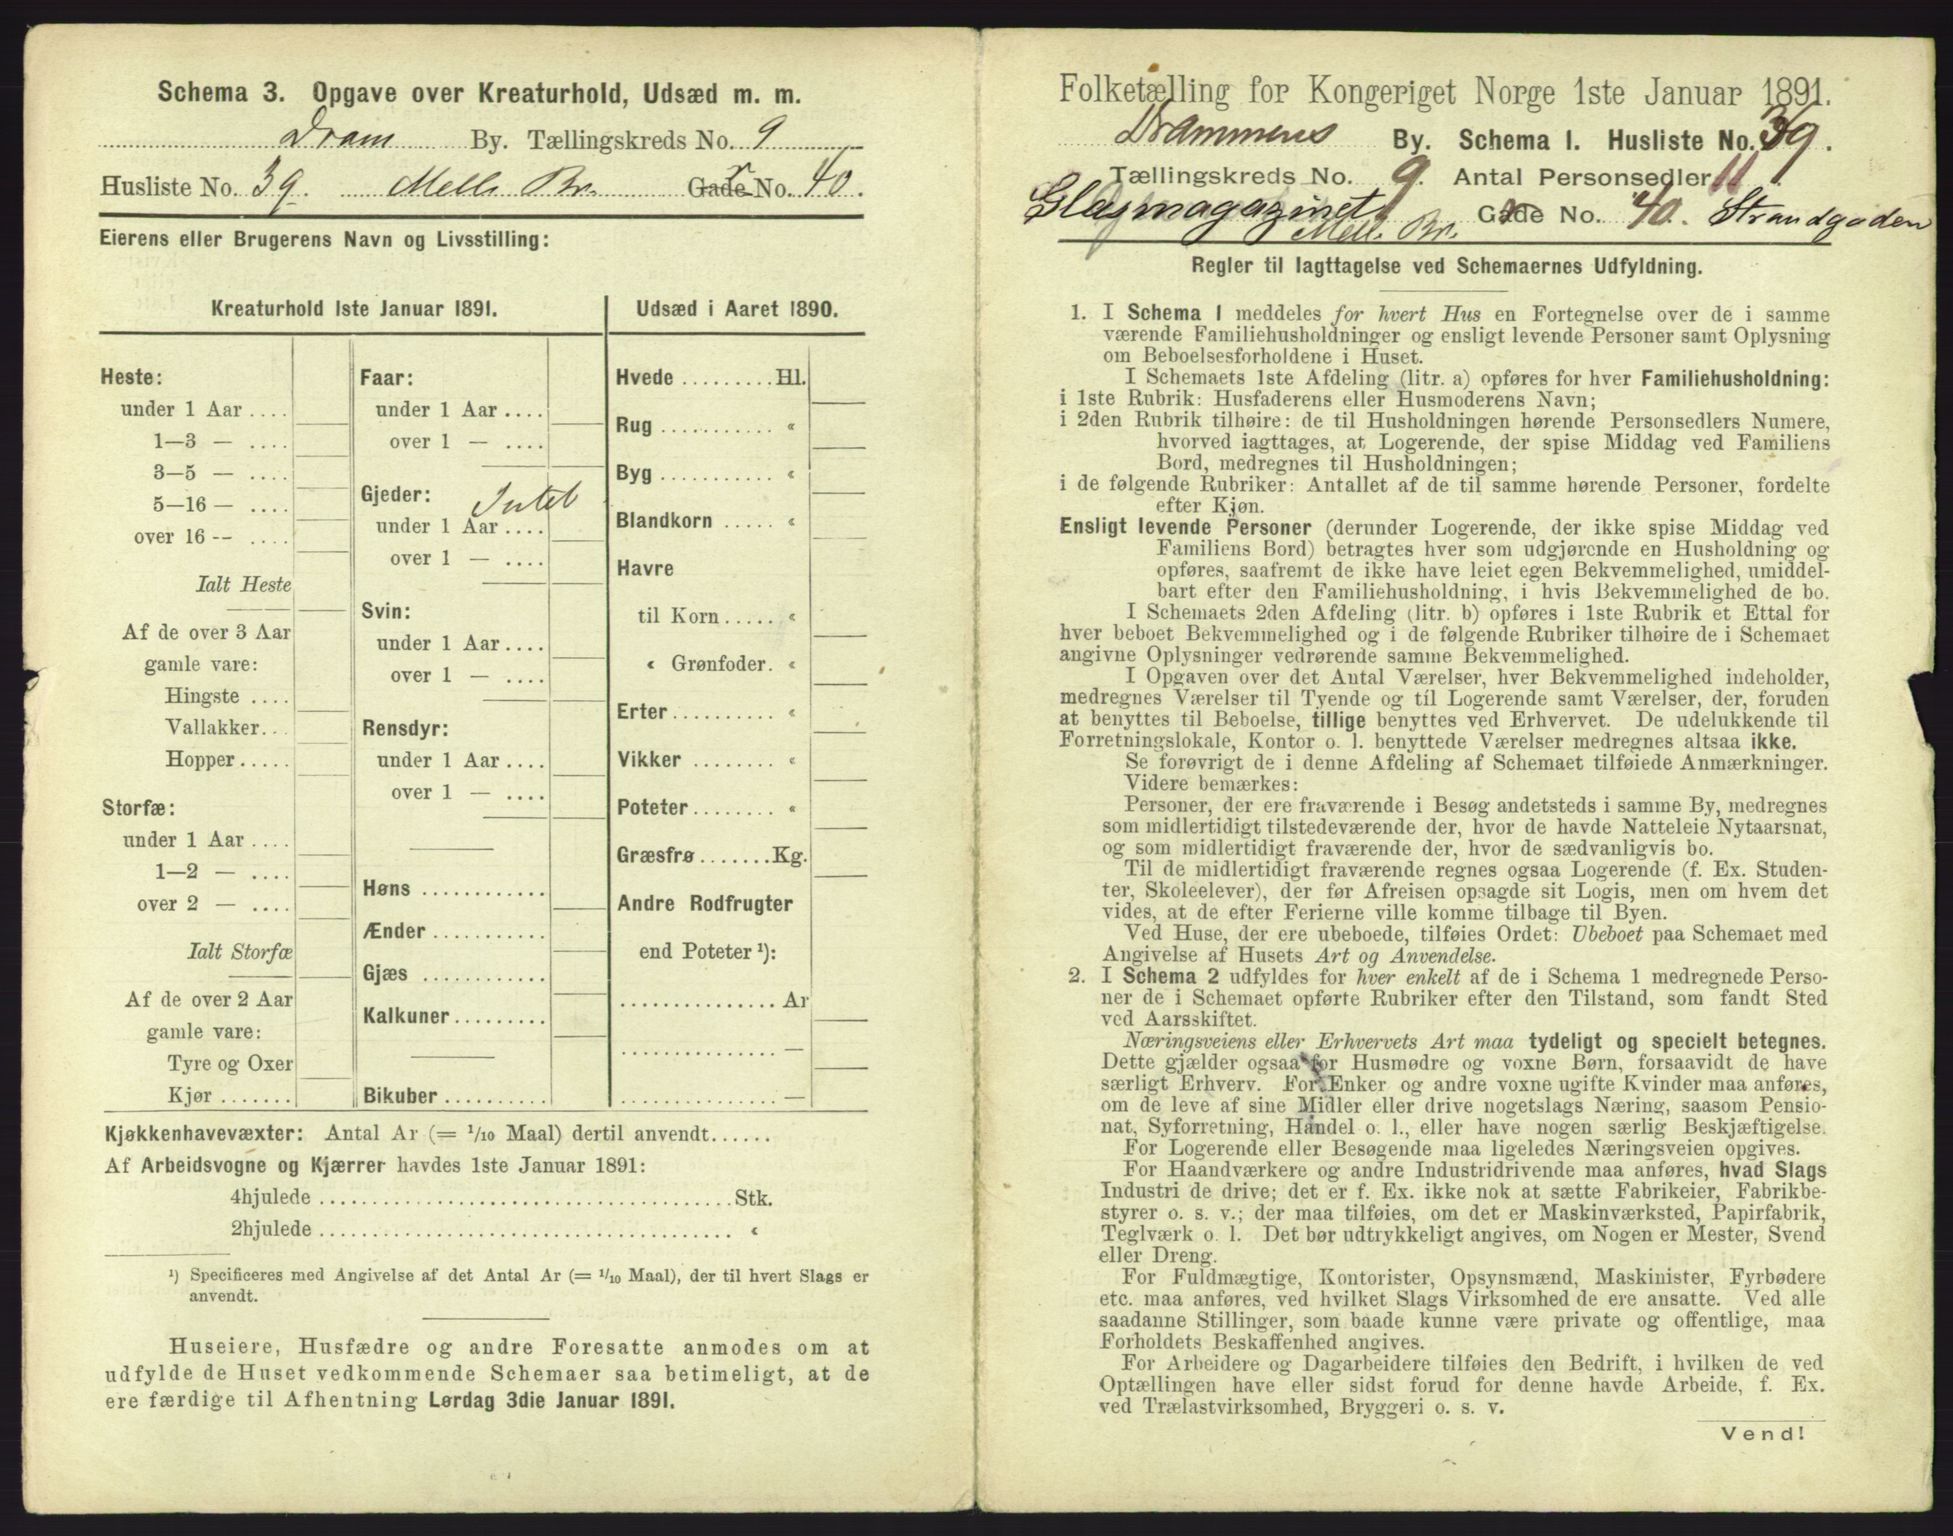 Schema 3. Opgave over Kreaturhold, Udsæd m. m.
Dram By. Tællingskreds No. 9
Husliste No. 39. Mell. Br. Gade No. 40.
Eierens eller Brugerens Navn og Livsstilling:
Kreaturhold 1ste Januar 1891.
Heste:
under 1 Aar ....
1—3 — ....
3—5 — ....
5—16 — ....
over 16 -- ....
Ialt Heste
Af de over 3 Aar
gamle vare:
Hingste ....
Vallakker...
Hopper.....
Storfæ:
under 1 Aar ....
1—2 — ....
over 2 — ....
Ialt Storfæ
Af de over 2 Aar
gamle vare:
Tyre og Oxer
Kjør .......
Faar:
under 1 Aar ....
over 1 — ....
Gjeder: Intet
under 1 Aar ....
over 1 — ....
Svin:
under 1 Aar ....
over 1 — ....
Rensdyr:
under 1 Aar ....
over 1 — ....
Høns ............
Ænder ...........
Gjæs ............
Kalkuner.........
Bikuber ..........
Udsæd i Aaret 1890.
Hvede .........Hl.
Rug ........... «
Byg ........... «
Blandkorn ..... «
Havre
til Korn ..... «
« Grønfoder. «
Erter.......... «
Vikker ........ «
Poteter........ «
Græsfrø.......Kg.
Andre Rodfrugter
end Poteter ¹):
............... Ar
............... —
............... —
Kjøkkenhavevæxter: Antal Ar (= 1/10 Maal) dertil anvendt......
Af Arbeidsvogne og Kjærrer havdes 1ste Januar 1891:
4hjulede ....................................Stk.
2hjulede .................................... «
¹) Specificeres med Angivelse af det Antal Ar (= 1/10 Maal), der til hvert Slags er
anvendt.
Huseiere, Husfædre og andre Foresatte anmodes om at
udfylde de Huset vedkommende Schemaer saa betimeligt, at de
ere færdige til Afhentning Lørdag 3die Januar 1891.
Folketælling for Kongeriget Norge 1ste Januar 1891.
Drammens By. Schema 1. Husliste No. 39.
Tællingskreds No. 9. Antal Personsedler 11.
Glasmagazinet Mell. Br. Gade No. 40. Strandgaden
Regler til Iagttagelse ved Schemaernes Udfyldning.
1. I Schema 1 meddeles for hvert Hus en Fortegnelse over de i samme
værende Familiehusholdninger og ensligt levende Personer samt Oplysning
om Beboelsesforholdene i Huset.
I Schemaets 1ste Afdeling (litr. a) opføres for hver Familiehusholdning:
i 1ste Rubrik: Husfaderens eller Husmoderens Navn;
i 2den Rubrik tilhøire: de til Husholdningen hørende Personsedlers Numere,
hvorved iagttages, at Logerende, der spise Middag ved Familiens
Bord, medregnes til Husholdningen;
i de følgende Rubriker: Antallet af de til samme hørende Personer, fordelte
efter Kjøn.
Ensligt levende Personer (derunder Logerende, der ikke spise Middag ved
Familiens Bord) betragtes hver som udgjørende en Husholdning og
opføres, saafremt de ikke have leiet egen Bekvemmelighed, umiddel-
bart efter den Familiehusholdning, i hvis Bekvemmelighed de bo.
I Schemaets 2den Afdeling (litr. b) opføres i 1ste Rubrik et Ettal for
hver beboet Bekvemmelighed og i de følgende Rubriker tilhøire de i Schemaet
angivne Oplysninger vedrørende samme Bekvemmelighed.
I Opgaven over det Antal Værelser, hver Bekvemmelighed indeholder,
medregnes Værelser til Tyende og til Logerende samt Værelser, der, foruden
at benyttes til Beboelse, tillige benyttes ved Erhvervet. De udelukkende til
Forretningslokale, Kontor o. l. benyttede Værelser medregnes altsaa ikke.
Se forøvrigt de i denne Afdeling af Schemaet tilføiede Anmærkninger.
Videre bemærkes:
Personer, der ere fraværende i Besøg andetsteds i samme By, medregnes
som midlertidigt tilstedeværende der, hvor de havde Natteleie Nytaarsnat,
og som midlertidigt fraværende der, hvor de sædvanligvis bo.
Til de midlertidigt fraværende regnes ogsaa Logerende (f. Ex. Studen-
ter, Skoleelever), der før Afreisen opsagde sit Logis, men om hvem det
vides, at de efter Ferierne ville komme tilbage til Byen.
Ved Huse, der ere ubeboede, tilføies Ordet: Ubeboet paa Schemaet med
Angivelse af Husets Art og Anvendelse.
2. I Schema 2 udfyldes for hver enkelt af de i Schema 1 medregnede Perso-
ner de i Schemaet opførte Rubriker efter den Tilstand, som fandt Sted
ved Aarsskiftet.
Næringsveiens eller Erhvervets Art maa tydeligt og specielt betegnes.
Dette gjælder ogsaa for Husmødre og voxne Børn, forsaavidt de have
særligt Erhverv. For Enker og andre voxne ugifte Kvinder maa anføres,
om de leve af sine Midler eller drive nogetslags Næring, saasom Pensio-
nat, Syforretning, Handel o. l., eller have nogen særlig Beskjæftigelse.
For Logerende eller Besøgende maa ligeledes Næringsveien opgives.
For Haandværkere og andre Industridrivende maa anføres, hvad Slags
Industri de drive; det er f. Ex. ikke nok at sætte Fabrikeier, Fabrikbe-
styrer o. s. v.; der maa tilføies, om det er Maskinværksted, Papirfabrik,
Teglværk o. l. Det bør udtrykkeligt angives, om Nogen er Mester, Svend
eller Dreng.
For Fuldmægtige, Kontorister, Opsynsmænd, Maskinister, Fyrbødere
etc. maa anføres, ved hvilket Slags Virksomhed de ere ansatte. Ved alle
saadanne Stillinger, som baade kunne være private og offentlige, maa
Forholdets Beskaffenhed angives.
For Arbeidere og Dagarbeidere tilføies den Bedrift, i hvilken de ved
Optællingen have eller sidst forud for denne havde Arbeide, f. Ex.
ved Trælastvirksomhed, Bryggeri o. s. v.
Vend!